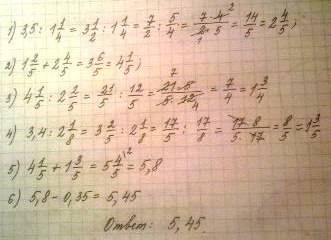 1) 3,5 : 1 1/4 = 3 1/2 : 1 1/4 = 7/2 : 5/4 = 7·4/2·5 = 14/5 = 2 4/5;
2) 1 2/5 + 2 4/5 = 3 6/5 = 4 1/5;
3) 4 1/5 : 2 2/5 = 21/5 : 12/5 = 21·5/5·12 = 7/4 = 1 3/4
4) 3,4 : 2 1/8 = 3 2/5 : 2 1/8 = 17/5 : 17/8 = 17·8/5·17 = 8/5 = 1 3/5
5) 4 1/5 + 1 3/5 = 5 4/5 = 5,8
6) 5,8 - 0,35 = 5,45
Ответ: 5,45